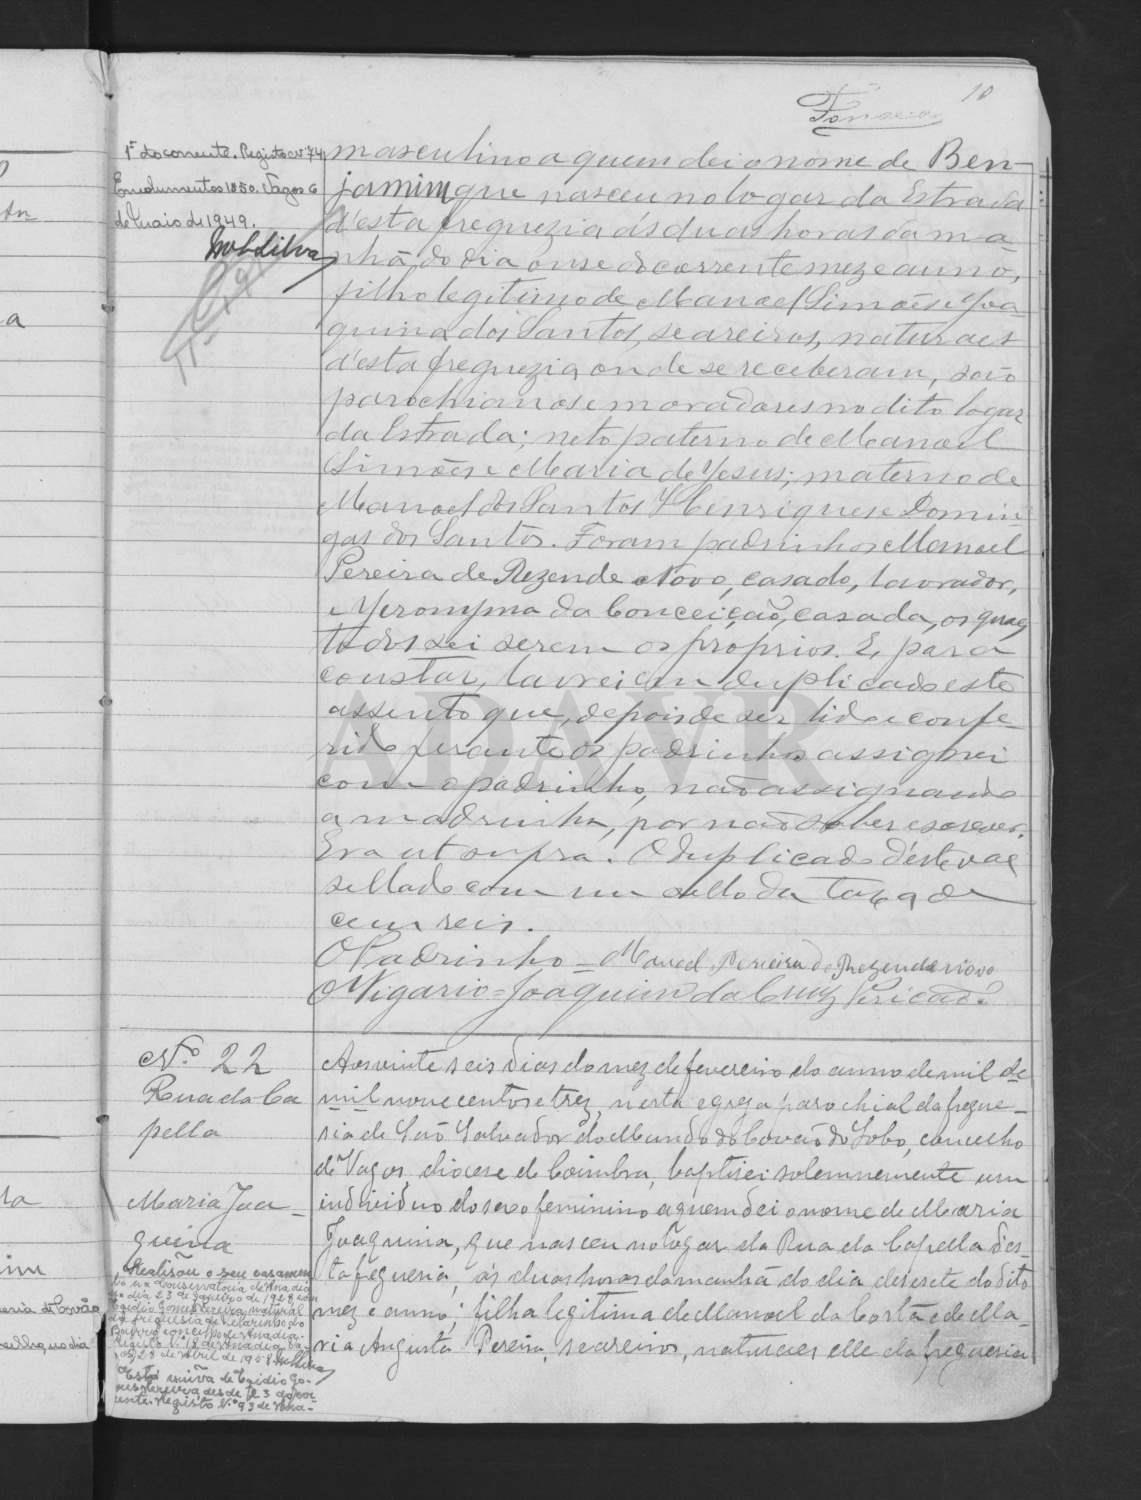 10
Fonseca
1º do corrente. Registo nº 74
Emolumentos 10$50. Vagos 6
de Maio de 1949.
masculino a quem dei o nome de Ben-
jamim que nasceu no logar da Estrada
d'esta freguezia ás duas horas da ma-
nhã do dia onse do corrente mez e anno,
filho legitimo de Manoel Simões e Joa-
quina dos Santos, seareiros, naturaes
d'esta freguezia onde se receberam, são
parochianos e moradores no dito logar
da Estrada; neto paterno de Manoel
Simões e Maria de Jesus; materno de
Manoel dos Santos Henriques e Domin-
gas dos Santos. Foram padrinhos Manoel
Pereira de Rezende Novo, casado, lavrador,
e Jeronyma da Conceição, casada, os quaes
todos sei serem os proprios. E, para
constar, lavrei em duplicado este
assento que, depois de ser lido e confe-
rido perante os padrinhos assignei
com o padrinho, não assignando
a madrinha, por não saber escrever.
Era ut supra. O duplicado d'este vae
sellado com um sello da taxa de
cem reis.
O Padrinho = Manoel Pereira de Rezende novo
O Vigario = Joaquim da Cruz
Nº 22
Rua da Ca
pella
Maria Joa-
quina
Realisou o seu casamen
to na Conservatória de Anadia
no dia 23 de Janeiro de 1928 com
Egidio Gomes Ferreira, natural
da freguesia de
concelho de Anadia.
Registo nº 18 de Anadia. Va-
gos, 28 de Abril de 1958
Está viúva de Egidio Go-
mes Ferreira, desde 23 do cor
rente. Registo Nº 93 de Ana-
Aos vinte seis dias do mez de fevereiro do anno de mil de
mil novecentos e trez, n'esta egreja parochial da fregue-
sia de São Salvador do Mundo do Covão do Lobo, concelho
de Vagos, diocese de Coimbra, baptisei solemnemente um
individuo do sexo feminino a quem dei o nome de Maria
Joaquina, que nasceu no logar da Rua da Capella des-
ta freguesia, ás duas horas da manhã do dia desesete do dito
mez e anno; filha legitima de Manoel da Costa e de Ma-
ria Augusta Pereira, seareiros, naturaes elle da freguesia
ADAVR